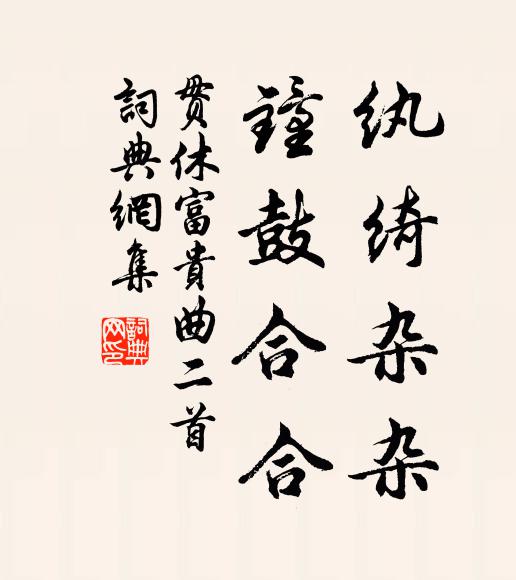 纨绮杂杂
鐘鼓合合
贯休富貴曲二首
詞典網集
詞典
网印